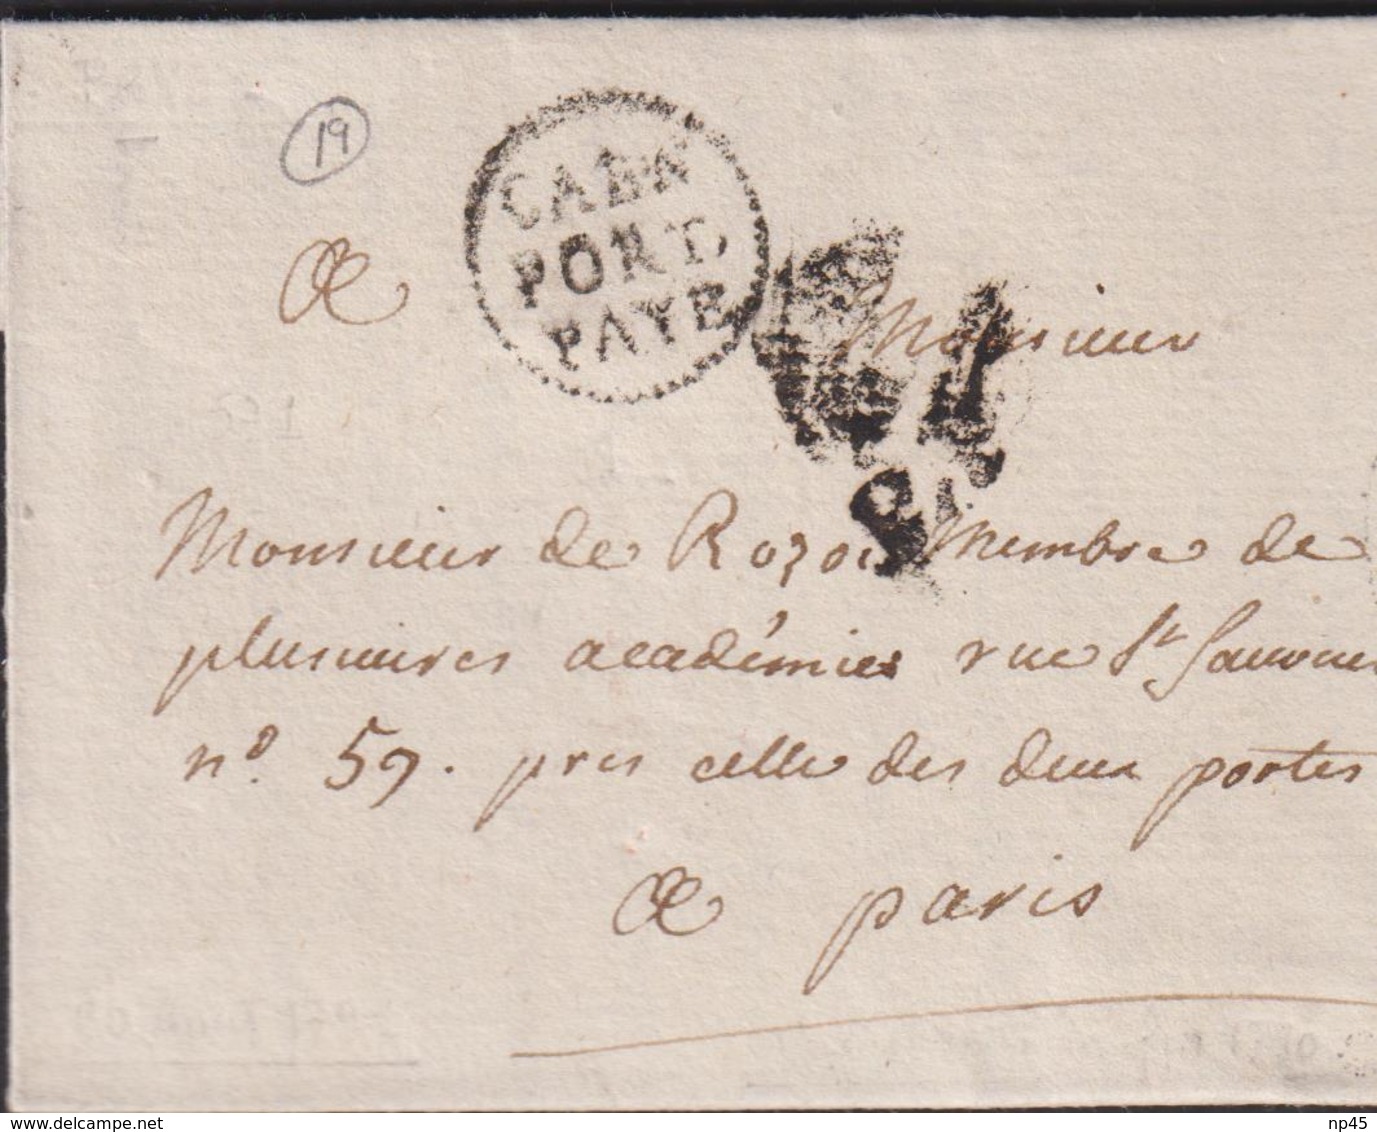 19
CAEN
PORT,
PAYE
A Monsieur
Monsieur de Rozoi Membre de
plusieures académies rue St Sauveur
n.o 59. pres celle des deux portes
A paris
www.delcampe.net
np45